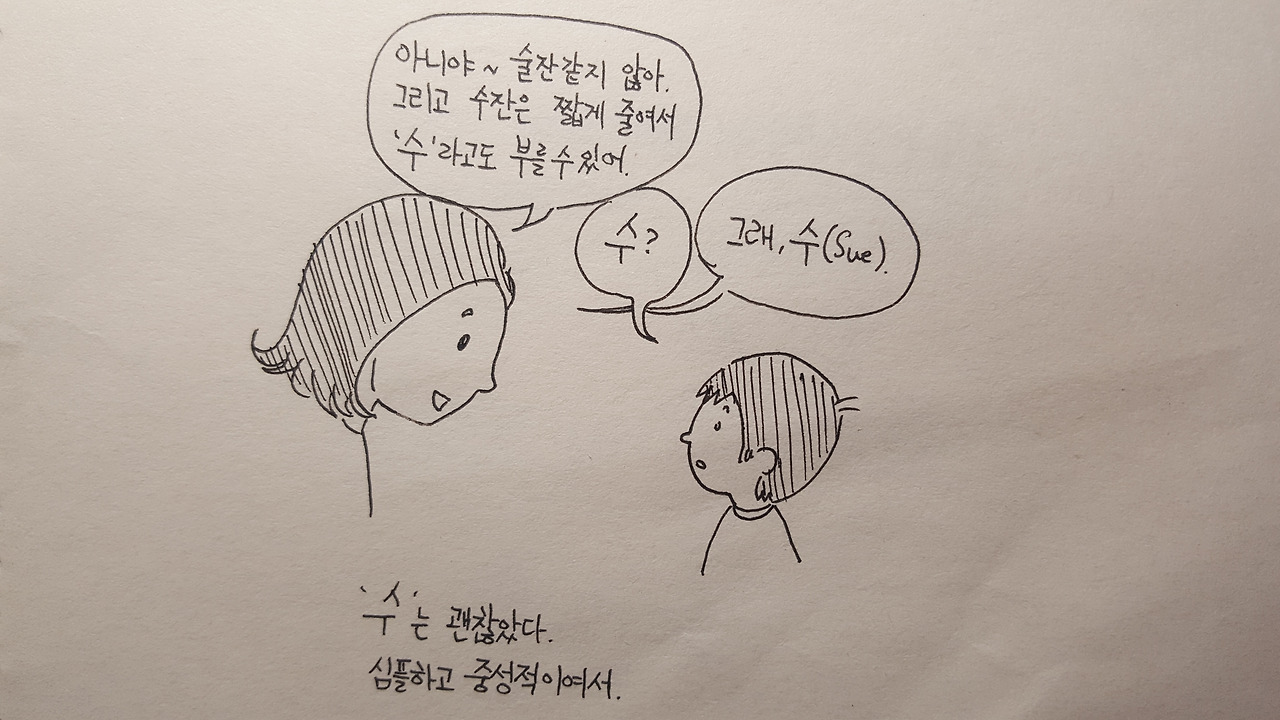 아니야 ~ 술잔같지 않아.
그리고 수잔은 짧게 줄여서
'수'라고도 부를수있어.
수?
그래, 수(Sue).
'수'는 괜찮았다.
심플하고 중성적이여서.